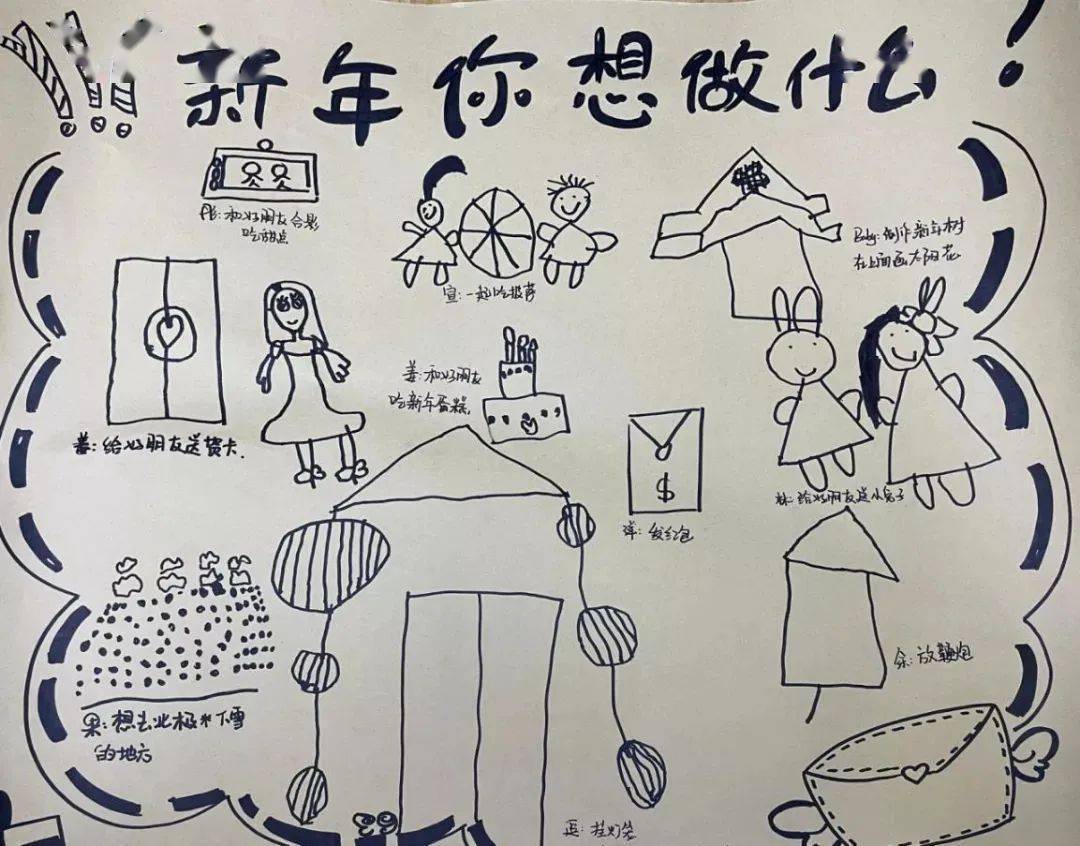 新年你想做什么!
和好朋友合影
吃甜点
宣:一起吃披萨
Baby:制作新年树
在上面画太阳花
姜:和好朋友
吃新年蛋糕
善:给好朋友送贺卡.
$
洋:发红包
林:给好朋友送小兔子
余:放鞭炮
果:想去北极 下雪
的地方
挂灯笼